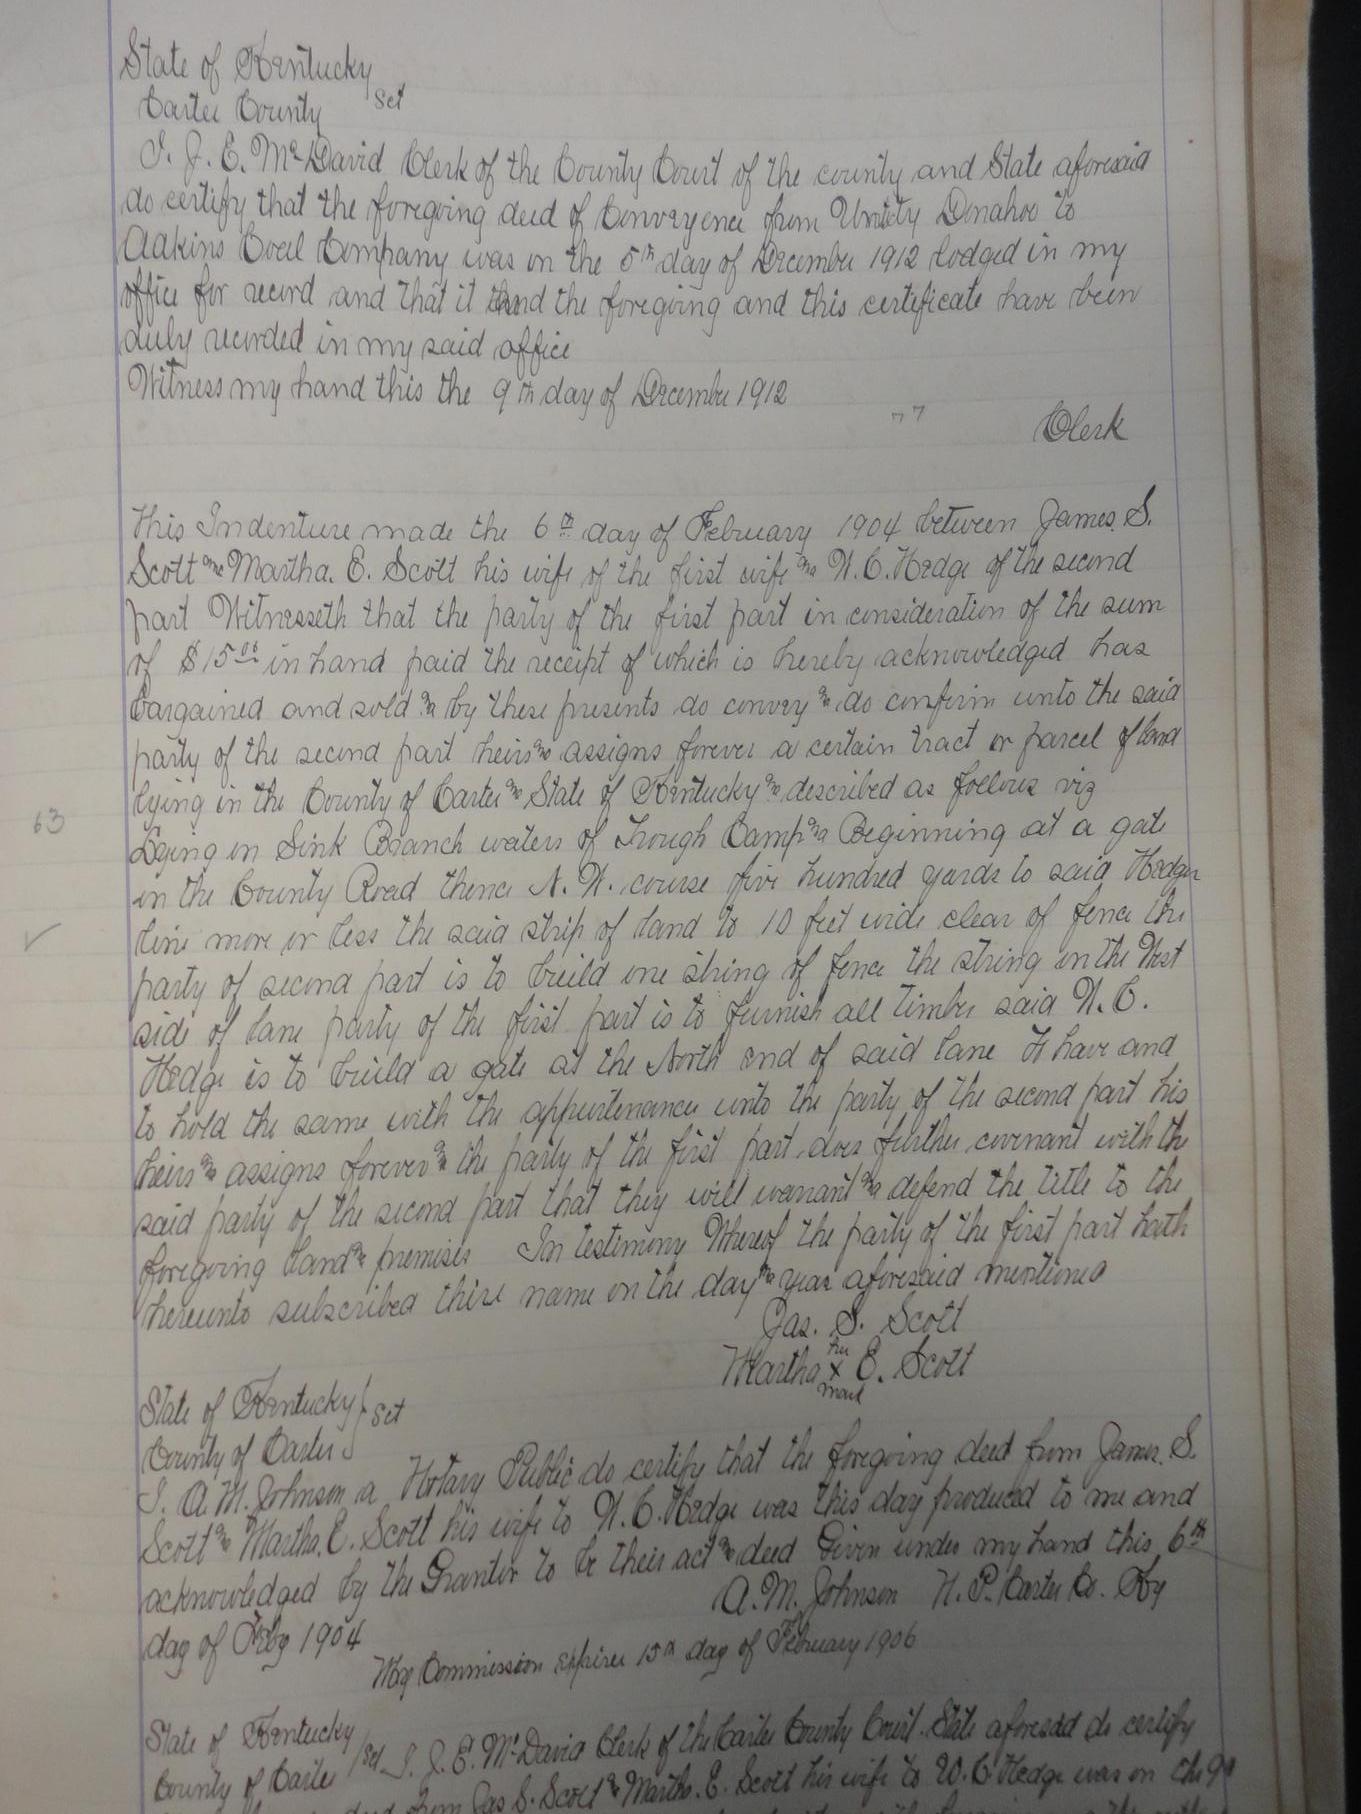 State of Kentucky
Carter County Sct
I. J. E. McDavid Clerk of the County Court of the county and State aforesaid
do certify that the foregoing deed of Conveyence from Unity Donahoo to
Adkins Coal Company was on the 5th day of December 1912 lodged in my
office for record and that it and the foregoing and this certificate have been
duly recorded in my said office
Witness my hand this the 9th day of December 1912
" "
Clerk
This Indenture made the 6th day of February 1904 between James. S.
Scott and Martha. E. Scott his wife of the first wife and W. C. Hedge of the second
part Witnesseth that the party of the first part in consideration of the sum
of $15.00 in hand paid the receipt of which is hereby acknowledged has
bargained and sold and by these presents do convey and do confirm unto the said
party of the second part heirs and assigns forever a certain tract or parcel of land
lying in the County of Carter and State of Kentucky and described as follows viz
63
Lying on Sink Branch waters of Trough Camp and Beginning at a gate
in the County Road thence N. W. course five hundred yards to said Hedge
line more or less the said strip of land to 10 feet wide clear of fence the
party of second part is to build one string of fence the string on the West
side of lane party of the first part is to furnish all timber said W. C.
Hedge is to build a gate at the North end of said lane To have and
to hold the same with the appurtenances unto the party of the second part his
heirs and assigns forever and the party of the first part does further covenant with the
said party of the second part that they will warrant and defend the title to the
foregoing land and premises In testimony Whereof the party of the first part hath
hereunto subscribed thire name on the day and year aforesaid mentioned
Jas. S. Scott
Martha her x mark E. Scott
State of Kentucky
County of Carter Sct
I. A. M. Johnson a Notary Public do certify that the foregoing deed from James. S.
Scott and Martha. E. Scott his wife to W. C. Hedge was this day produced to me and
acknowledged by the Grantor to be their act and deed Given under my hand this 6th
day of Feby 1904 A. M. Johnson N. P. Carter Co. Ky
My Commission expires 15th day of February 1906
State of Kentucky
County of Carter Sct I. J. E. McDavid Clerk of the Carter County Court. State aforesaid do certify
deed from Jas S. Scott and Martha. E. Scott his wife to W. C. Hedge was on the 9th